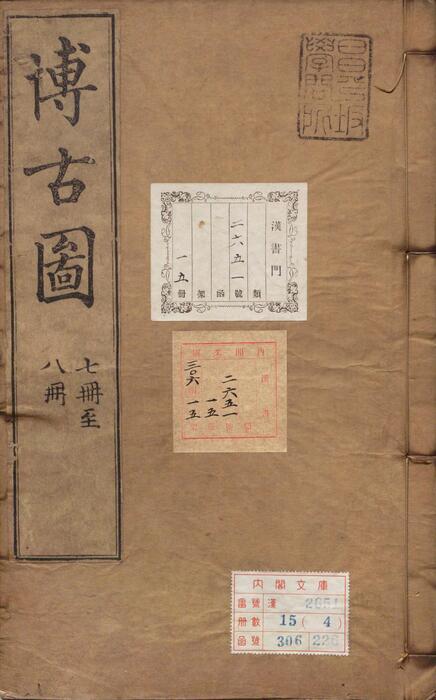 博古圖
七冊至
八冊
昌平坂
學問所
漢書門
類
二六五一
號
函
架
一五
冊
二六五一
一五
三〇六
一五
內閣文庫
番號 漢 2651
冊數 15 ( 4 )
函號 306